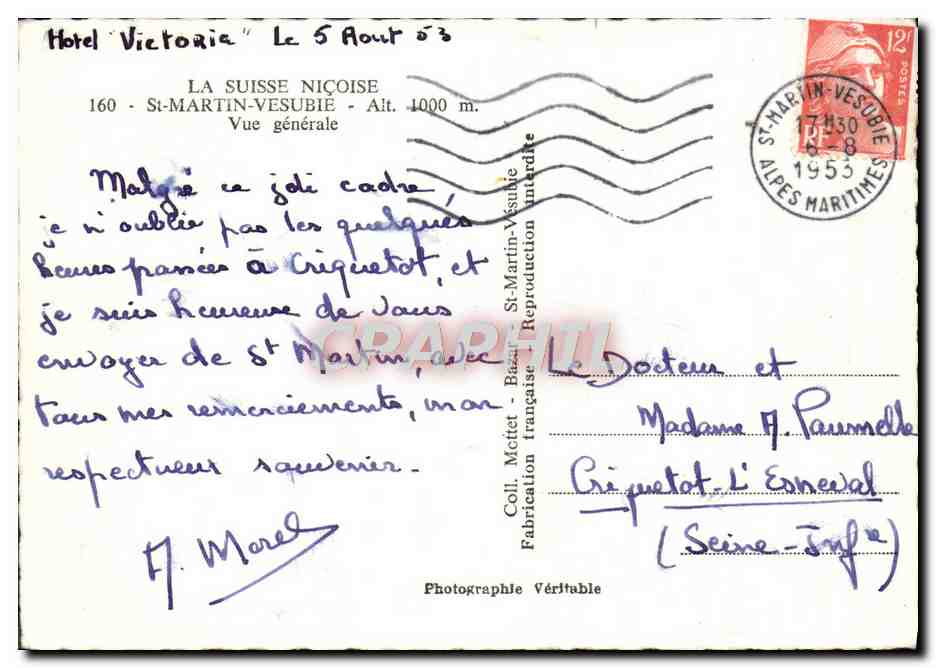 Hotel "Victoria" Le 5 Aout 53
LA SUISSE NIÇOISE
160 - St-MARTIN-VESUBIE - Alt. 1000 m.
Vue générale
12F
POSTES
RF
ST-MARTIN-VESUBIE
17H30
6-8
1953
ALPES MARITIMES
Malgré ce joli cadre,
je n'oublie pas les quelques
heures passées à Criquetot, et
je suis heureuse de vous
envoyer de St Martin, avec
tous mes remerciements, mon
respectueux souvenir.
A. Morel
Coll. Mottet - Bazar - St-Martin-Vésubie
Fabrication française - Reproduction interdite
CPAPHIL
Le Docteur et
Madame A. Paumelle
Criquetot-L'Esneval
(Seine-Infre)
Photographie Véritable